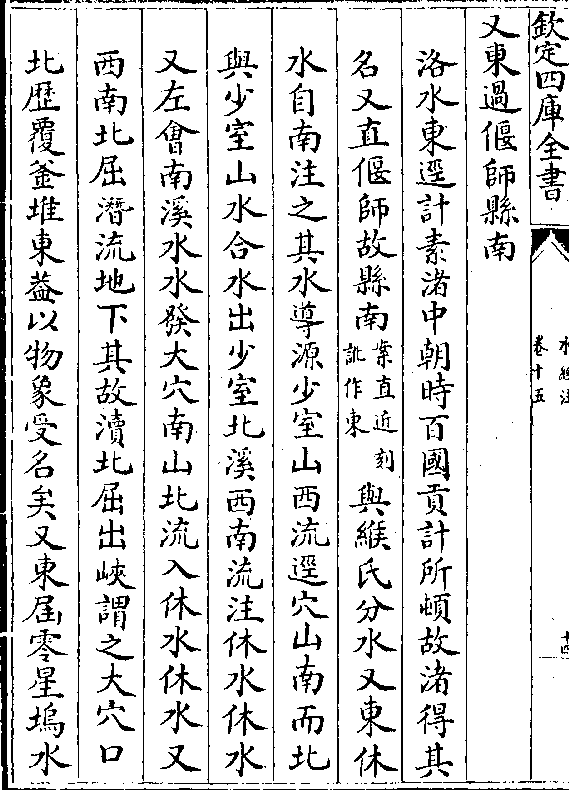 欽定四庫全書
水經注
卷十五
十四
又東過偃師縣南
洛水東逕計素渚中朝時百國貢計所頓故渚得其
名又直偃師故縣南案直近刻訛作東與緱氏分水又東休
水自南注之其水導源少室山西流逕穴山南而北
與少室山水合水出少室北溪西南流注休水休水
又左會南溪水水發大穴南山北流入休水休水又
西南北屈潛流地下其故瀆北屈出峽謂之大穴口
北歷覆釜堆東葢以物象受名矣又東屆零星塢水